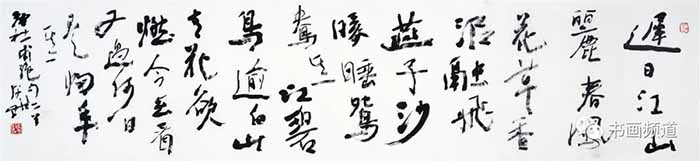 遲日江山
麗春風
花草香
泥融飛
燕子沙
暖睡鴛
鴦 江碧
鳥逾白山
青花欲
燃今春看
又過何日
是歸年
杜甫絕句二首
书画频道